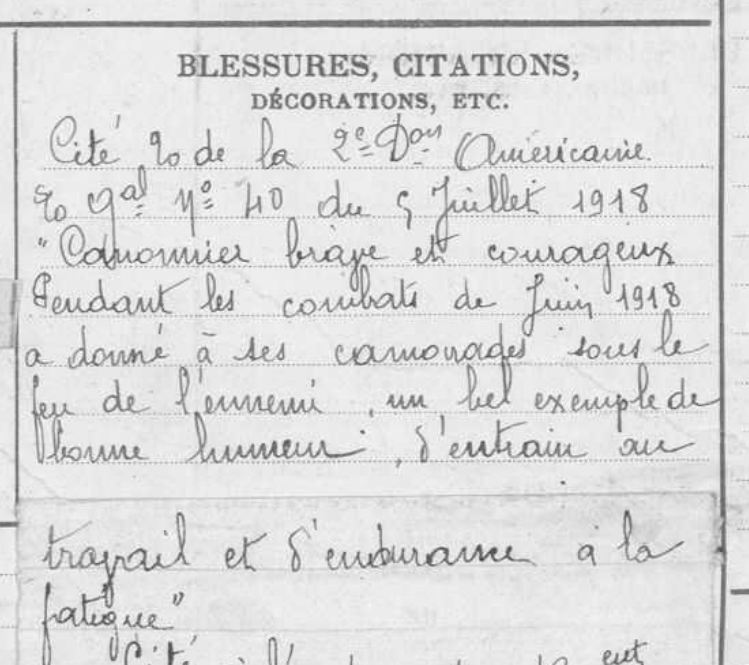 BLESSURES, CITATIONS,
DÉCORATIONS, ETC.
Cité de la 2e Don Américaine.
Gal No 40 du 5 Juillet 1918
"Canonnier brave et courageux
Pendant les combats de Juin 1918
a donné à ses camarades sous le
feu de l'ennemi, un bel exemple de
bonne humeur, d'entrain au
travail et d'endurance à la
fatigue"
Cité à l'